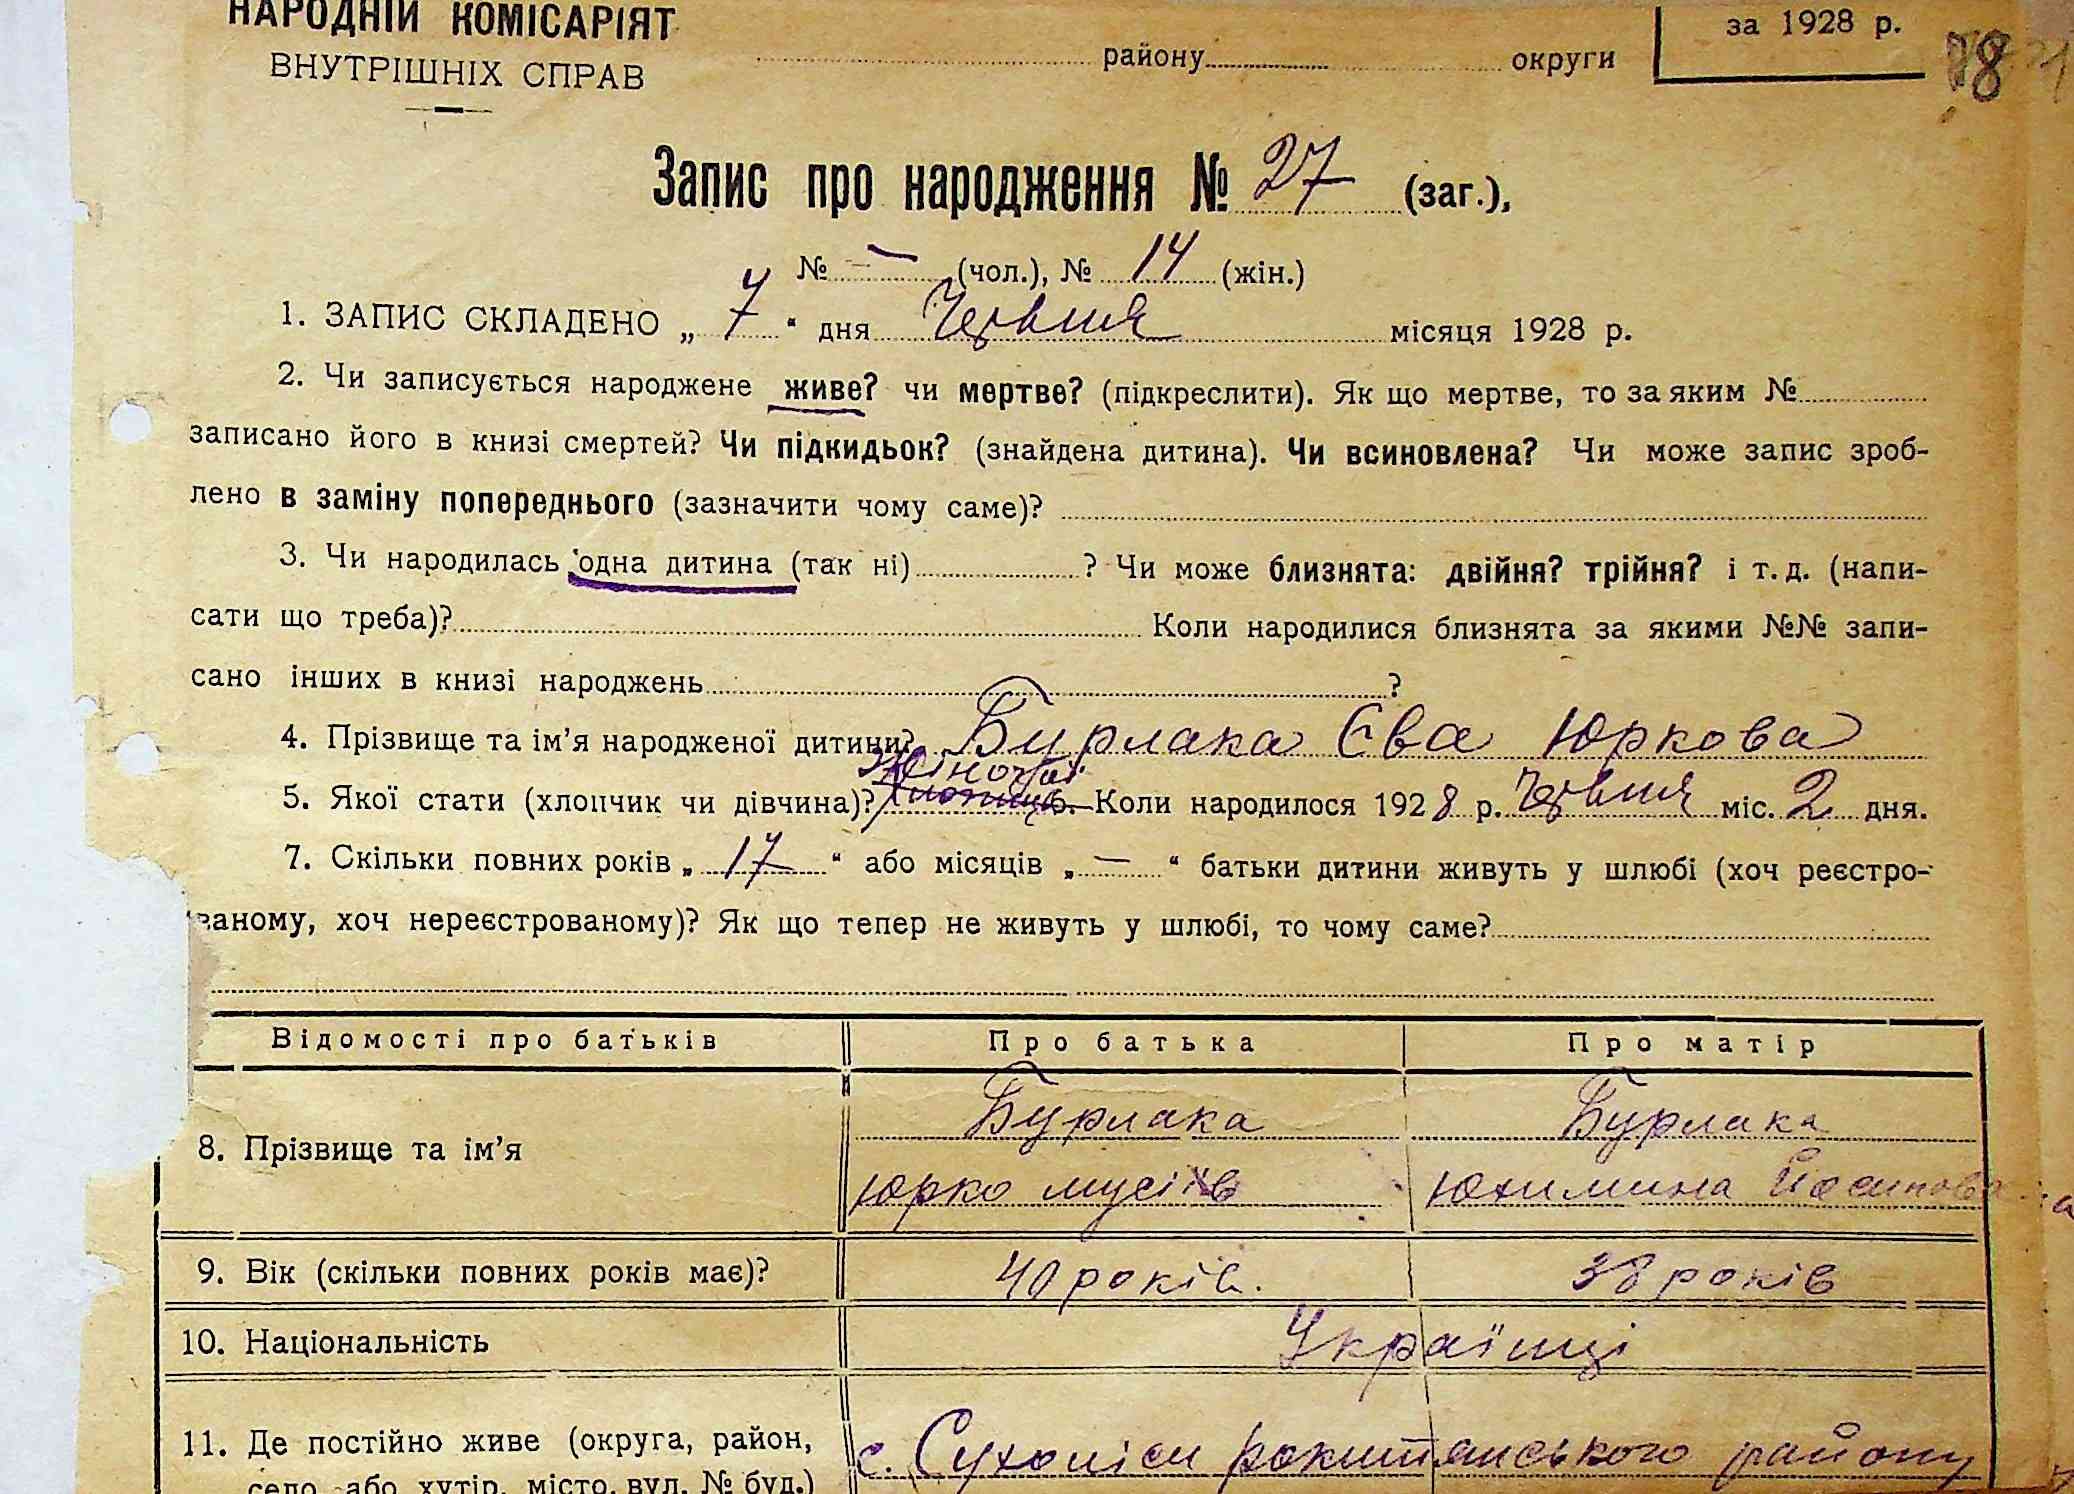 НАРОДНІЙ КОМІСАРІЯТ
ВНУТРІШНІХ СПРАВ
району округи
за 1928 р.
78
Запис про народження № 27 (заг.),
№ — (чол.), № 14 (жін.)
1. ЗАПИС СКЛАДЕНО „ 7 “ дня Червня місяця 1928 р.
2. Чи записується народжене живе? чи мертве? (підкреслити). Як що мертве, то за яким №
записано його в книзі смертей? Чи підкидьок? (знайдена дитина). Чи всиновлена? Чи може запис зроб-
лено в заміну попереднього (зазначити чому саме)?
3. Чи народилась одна дитина (так ні) ? Чи може близнята: двійня? трійня? і т. д. (напи-
сати що треба)? Коли народилися близнята за якими №№ запи-
сано інших в книзі народжень ?
4. Прізвище та ім’я народженої дитини? Бурлака Єва Юркова
5. Якої стати (хлопчик чи дівчина)? Жіночої Коли народилося 1928 р. Червня міс. 2 дня.
7. Скільки повних років „ 17 “ або місяців „ — “ батьки дитини живуть у шлюбі (хоч реєстро-
ваному, хоч нереєстрованому)? Як що тепер не живуть у шлюбі, то чому саме?
Відомості про батьків Про батька Про матір
8. Прізвище та ім’я
Бурлака Бурлака
Юрко мусіїв Юхимина Йосипова
9. Вік (скільки повних років має)? 40 років. 38 років
10. Національність Українці
11. Де постійно живе (округа, район, с. Сухоліси рокитянського району
село або хутір, місто, вул. № буд.)